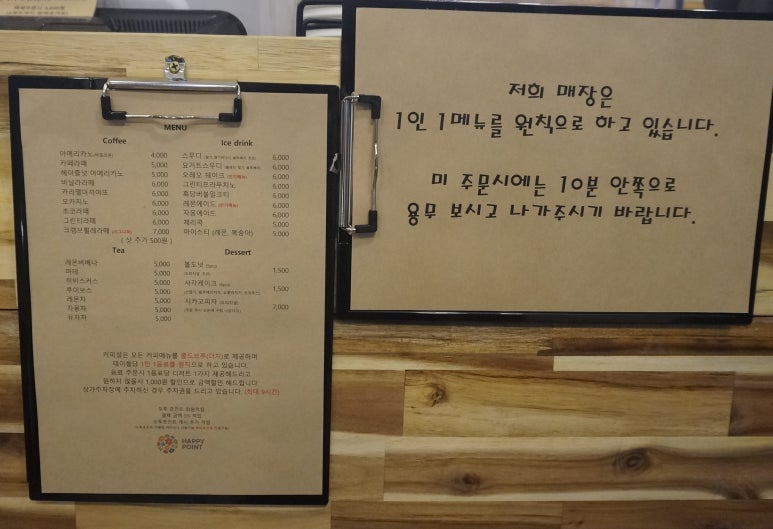 MENU
Coffee
아메리카노 4,000
카페라떼 5,000
헤이즐넛 아메리카노 5,000
바닐라라떼 6,000
카라멜마끼아또 6,000
모카치노 6,000
초코라떼 6,000
그린티라떼 6,000
크렘브륄레라떼 7,000
( 샷 추가 500원 )
Ice drink
스무디 6,000
요거트스무디 6,000
오레오 쉐이크 6,000
그린티프라푸치노 6,000
흑당버블밀크티 6,000
레몬에이드 6,000
자몽에이드 6,000
체리콕 5,000
아이스티 (레몬, 복숭아) 5,000
Tea
레몬버베나 5,000
마테 5,000
히비스커스 5,000
루이보스 5,000
레몬차 5,000
자몽차 5,000
유자차 5,000
Dessert
볼도넛 1,500
사각케이크 1,500
시카고피자 2,000
커피설은 모든 커피메뉴를 콜드브루(더치)로 제공하며
테이블당 1인 1음료를 원칙으로 하고 있습니다.
음료 주문시 1음료당 디저트 1가지 제공해드리고
원하지 않을시 1,000원 할인으로 금액할인 해드립니다
상가주차장에 주차하신 경우 주차권을 드리고 있습니다. (최대 9시간)
HAPPY
POINT
저희 매장은
1인 1메뉴를 원칙으로 하고 있습니다.
미 주문시에는 10분 안쪽으로
용무 보시고 나가주시기 바랍니다.